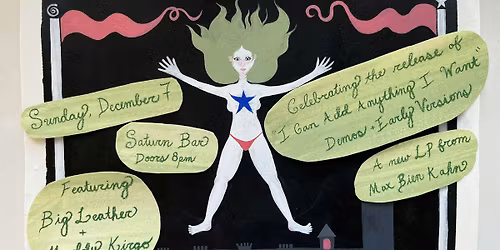 Sunday, December 7
Saturn Bar
Doors 8pm
Featuring
Big Leather
+
Kirgo
Celebrating the release of
"I Can Add Anything I Want"
Demos + Early Versions
A new LP from
Max Bien Kahn